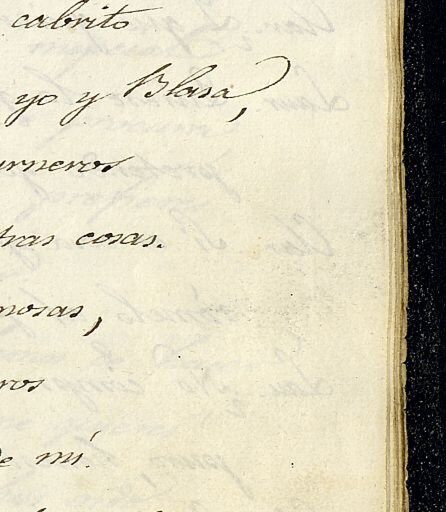 cabrito
yo y Blasa,
rneros
tras cosas.
mosas,
ros
de mí.